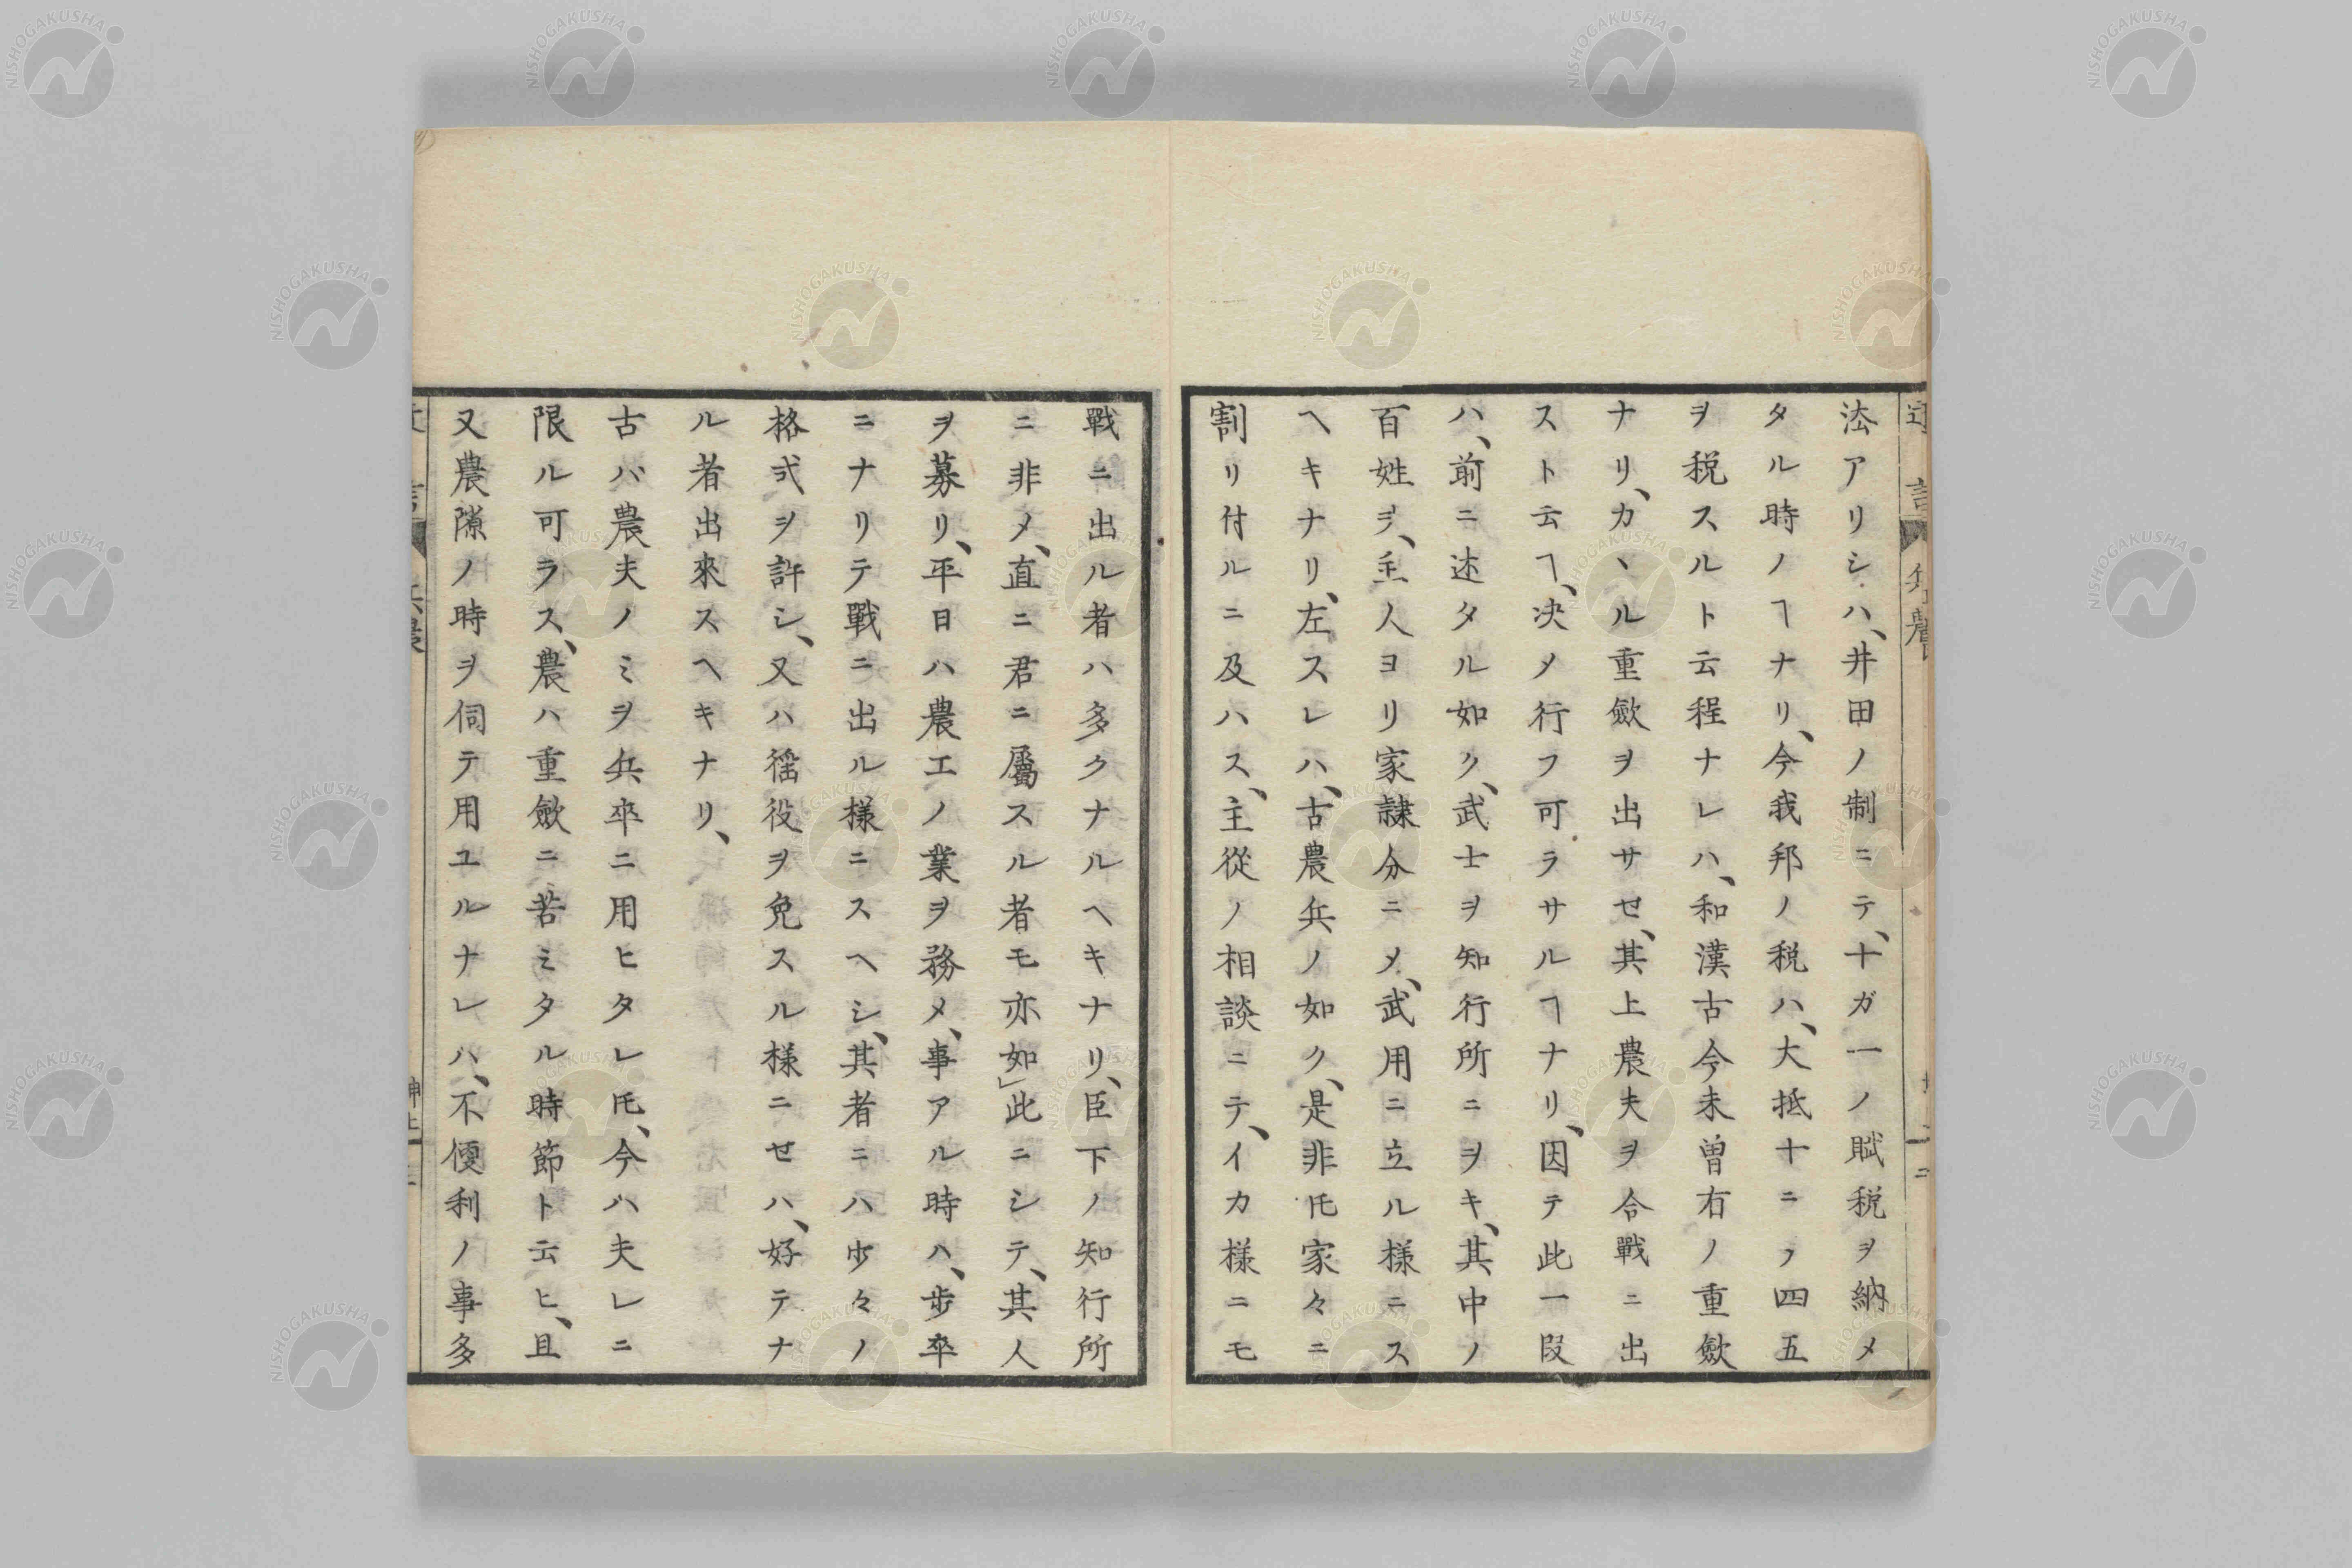 法アリシハ、井田ノ制ニテ、十ガ一ノ賦税ヲ納メ
タル時ノヿナリ、今我邦ノ税ハ、大抵十ニノ四五
ヲ税スルト云程ナレハ、和漢古今未曽有ノ重歛
ナリ、カヽル重歛ヲ出サセ、其上農夫ヲ合戰ニ出
スト云ヿ、决メ行フ可ラサルヿナリ、因テ此一段
ハ、前ニ述タル如ク、武士ヲ知行所ニヲキ、其中ノ
百姓ヲ、主人ヨリ家隷分ニメ、武用ニ立ル様ニス
ヘキナリ、左スレハ、古農兵ノ如ク、是非𪜈家々ニ
割リ付ルニ及ハス、主從ノ相談ニテ、イカ様ニモ
戰ニ出ル者ハ多クナルヘキナリ、臣下ノ知行所
ニ非メ、直ニ君ニ屬スル者モ亦如」此ニシテ、其人
ヲ募リ、平日ハ農工ノ業ヲ務メ、事アル時ハ、歩卒
ニナリテ戰ニ出ル様ニスヘシ、其者ニハ少々ノ
格式ヲ許シ、又ハ徭役ヲ免スル様ニセハ、好テナ
ル者出來スヘキナリ、
古ハ農夫ノミヲ兵卒ニ用ヒタレ𪜈、今ハ夫レニ
限ル可ラス、農ハ重歛ニ苦ミタル時節ト云ヒ、且
又農隙ノ時ヲ伺テ用ユルナレハ、不便利ノ事多
NISHOGAKUSHA